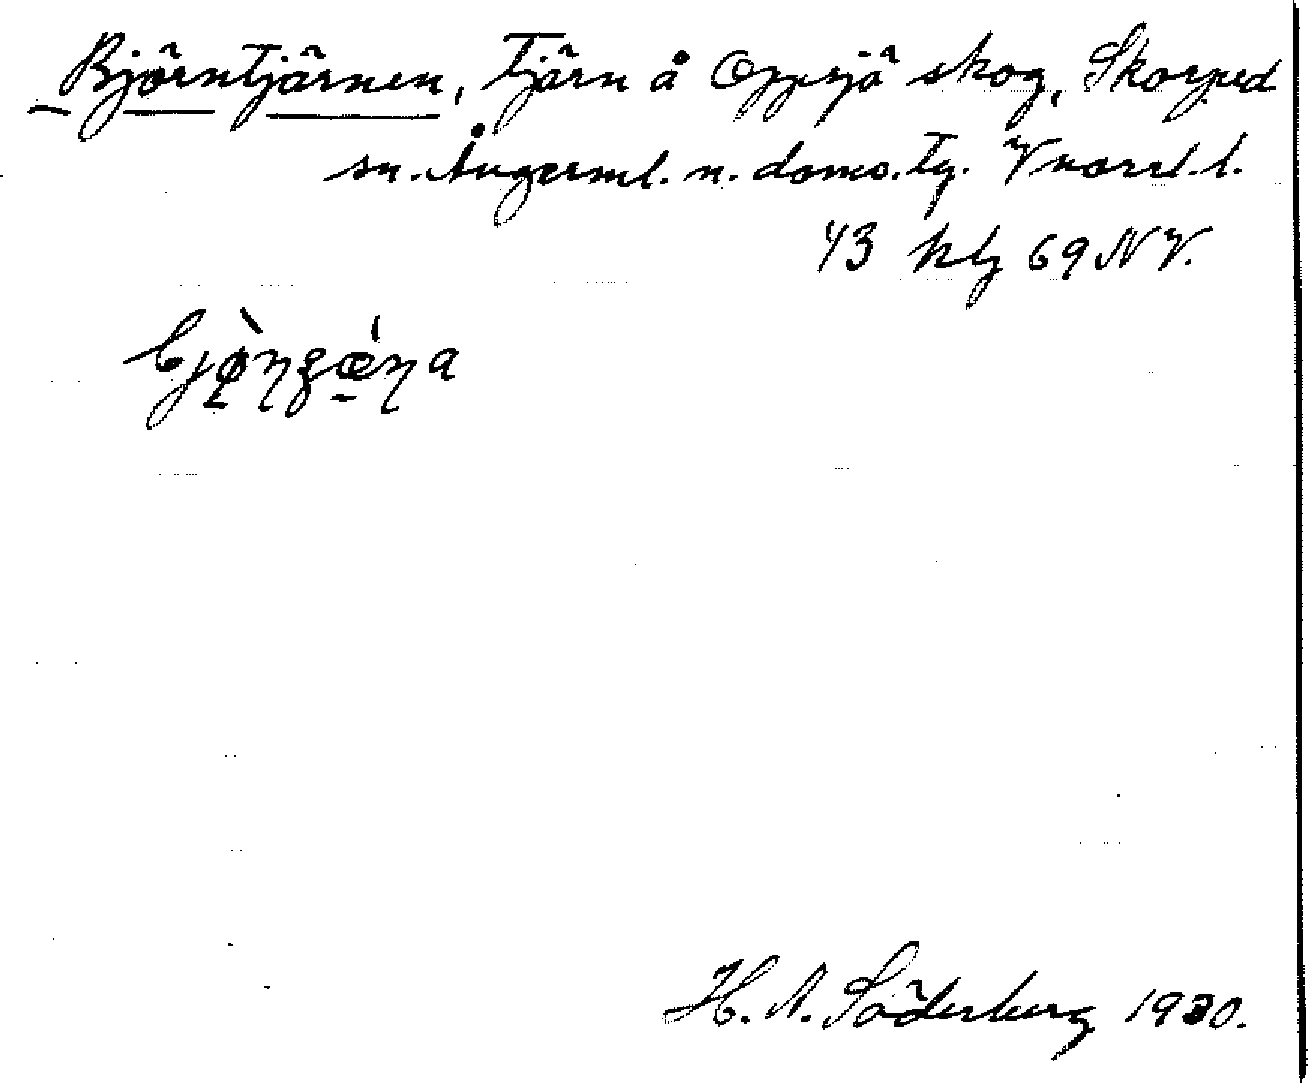 Björntjärnen, Tjärn å Oppsjö skog, Skorped
sn. Ångerml. n. doms. tg. Vnorrl. l.
43 hlg 69 NV.
H. N. Söderberg 1930.